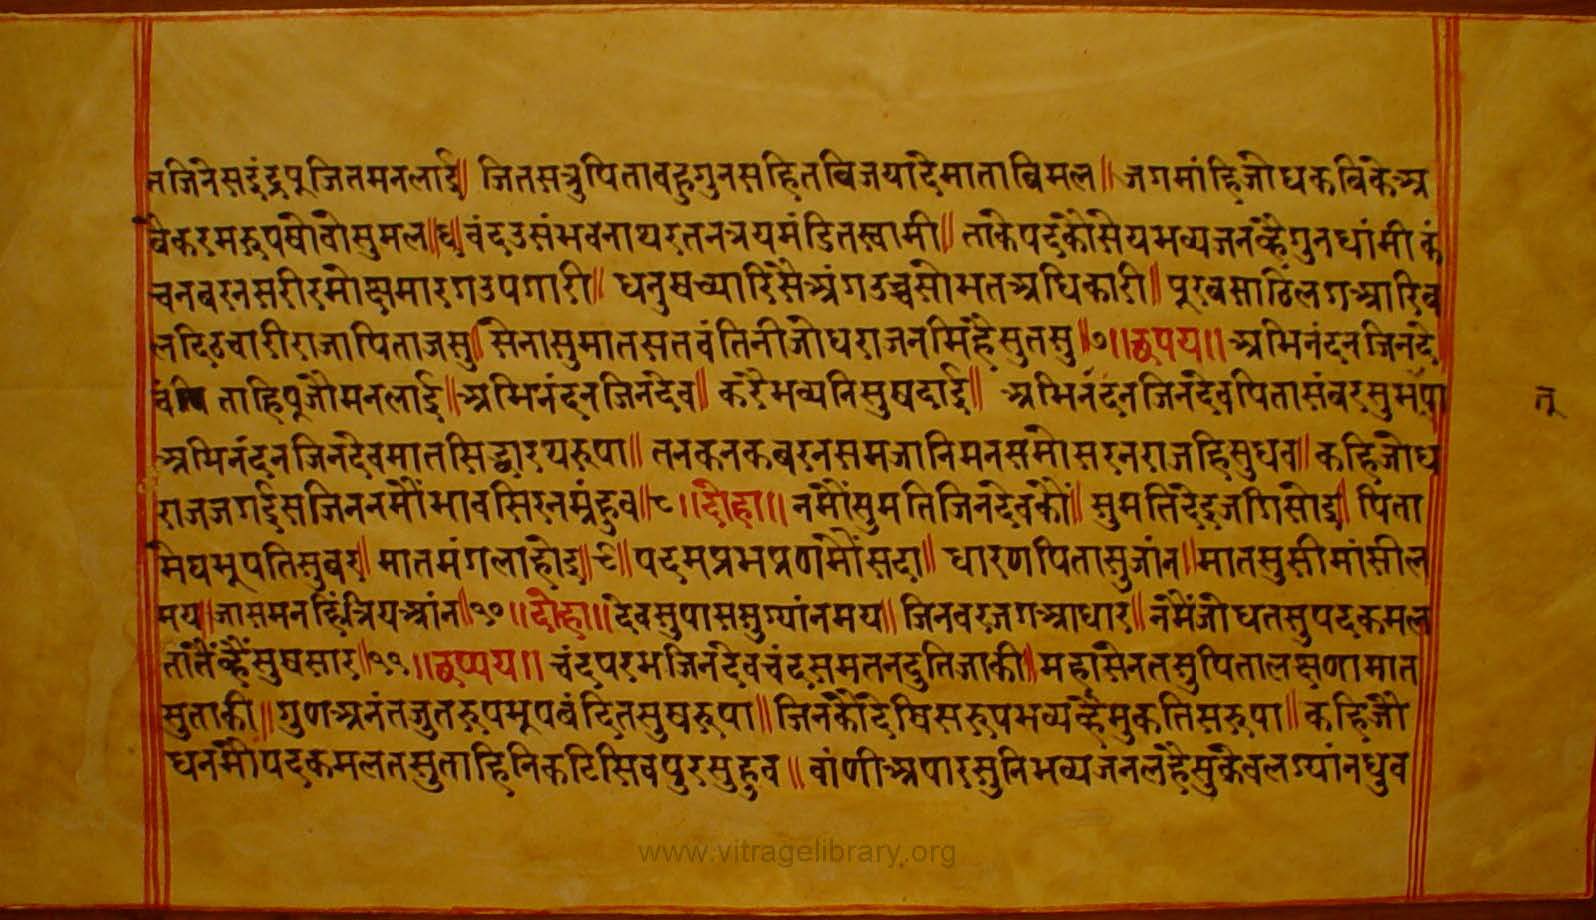 तजिनेसइंद्रपूजितमनलाई॥ जितसत्रुपिताबहुगुनसहितविजयादेमाताविमल॥ जगमांहिजोधकविकेअ
वेकरमरूपषोवोसुमल॥६॥वंदउसंभवनाथरतनत्रयमंडितस्वामी॥ ताकेपदकौसेयभव्यजनव्हैगुनधांमी कं
चनबरनसरीरमोक्षमारगउपगारी॥ धनुषच्यारिसैअंगउच्चसोभतअधिकारी॥ पूरबसाठिलगआरिव
लदिढचारीराजापिताजसु॥ सेनासुमातसतवंतिनीजोधराजनमिहैसुतसु॥७॥॥छपय॥॥अभिनंदनजिनदे
व ताहिपूजौमनलाई॥अभिनंदनजिनदेव॥ करैभव्यनिसुषदाई॥ अभिनंदनजिनदेवपितासंबरसुभपा
अभिनंदनजिनदेवमातसिद्धारथरूपा॥ तनकनकबरनसमजानिमनसमौसरनराजहिसुधव॥ कहिजोध
राजजगईसजिननमौंभावसिरनम्रंहुव॥८॥॥दोहा॥॥ नमौंसुमतिजिनदेवकौं॥ सुमतिदेइजगिसोइ॥ पिता
मेघभूपतिसुबर॥ मातमंगलाहोइ॥९॥पदमप्रभप्रणमौंसदा॥ धारणपितासुजांन॥मातसुसीमांसील
मय॥जासमनहिंत्रियआंन॥१०॥॥दोहा॥॥देवसुपाससुग्यांनमय॥ जिनवरजगआधार॥ नमैंजोधतसुपदकमल
तांतैंव्हैंसुषसार॥११॥॥छप्पय॥॥ चंदपरमजिनदेवचंदसमतनदुतिजाकी॥महासेनतसुपितालक्षणामात
सुताकी॥ गुणअनंतजुतरूपभूपबंदितसुषरूपा॥जिनकौंदेषिसरूपभव्यव्हैमुकतिसरूपा॥ कहिजौ
धनमौपदकमलतसुताहिनिकटिसिवपुरसुहुव॥ वांणीअपारसुनिभव्यजनलहैसुकेवलग्यांनधुव
तू
www.vitragelibrary.org